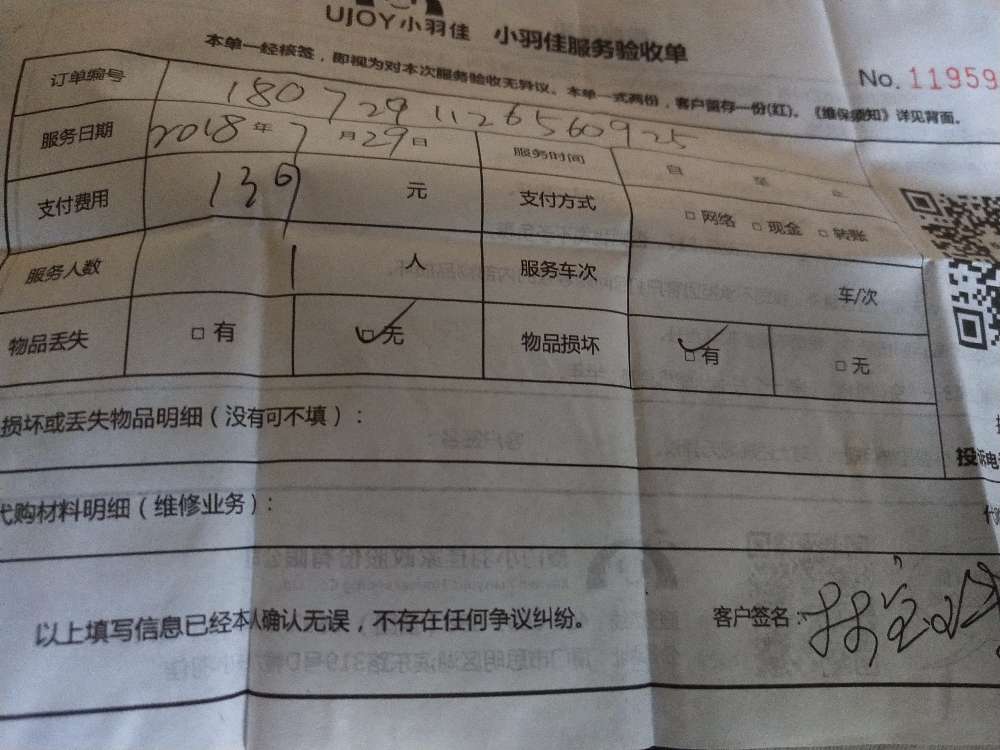 UJOY小羽佳 小羽佳服务验收单
本单一经核签，即视为对本次服务验收无异议。本单一式两份，客户留存一份(红)。《维保须知》详见背面。
No. 11959
订单编号 1807291126560925
服务日期 2018年7月29日 服务时间 自 至 止
支付费用 139 元 支付方式 □网络 □现金 □转账
服务人数 1 人 服务车次 车/次
物品丢失 □有 ☑无 物品损坏 ☑有 □无
损坏或丢失物品明细（没有可不填）：
代购材料明细（维修业务）：
以上填写信息已经本人确认无误，不存在任何争议纠纷。
客户签名：